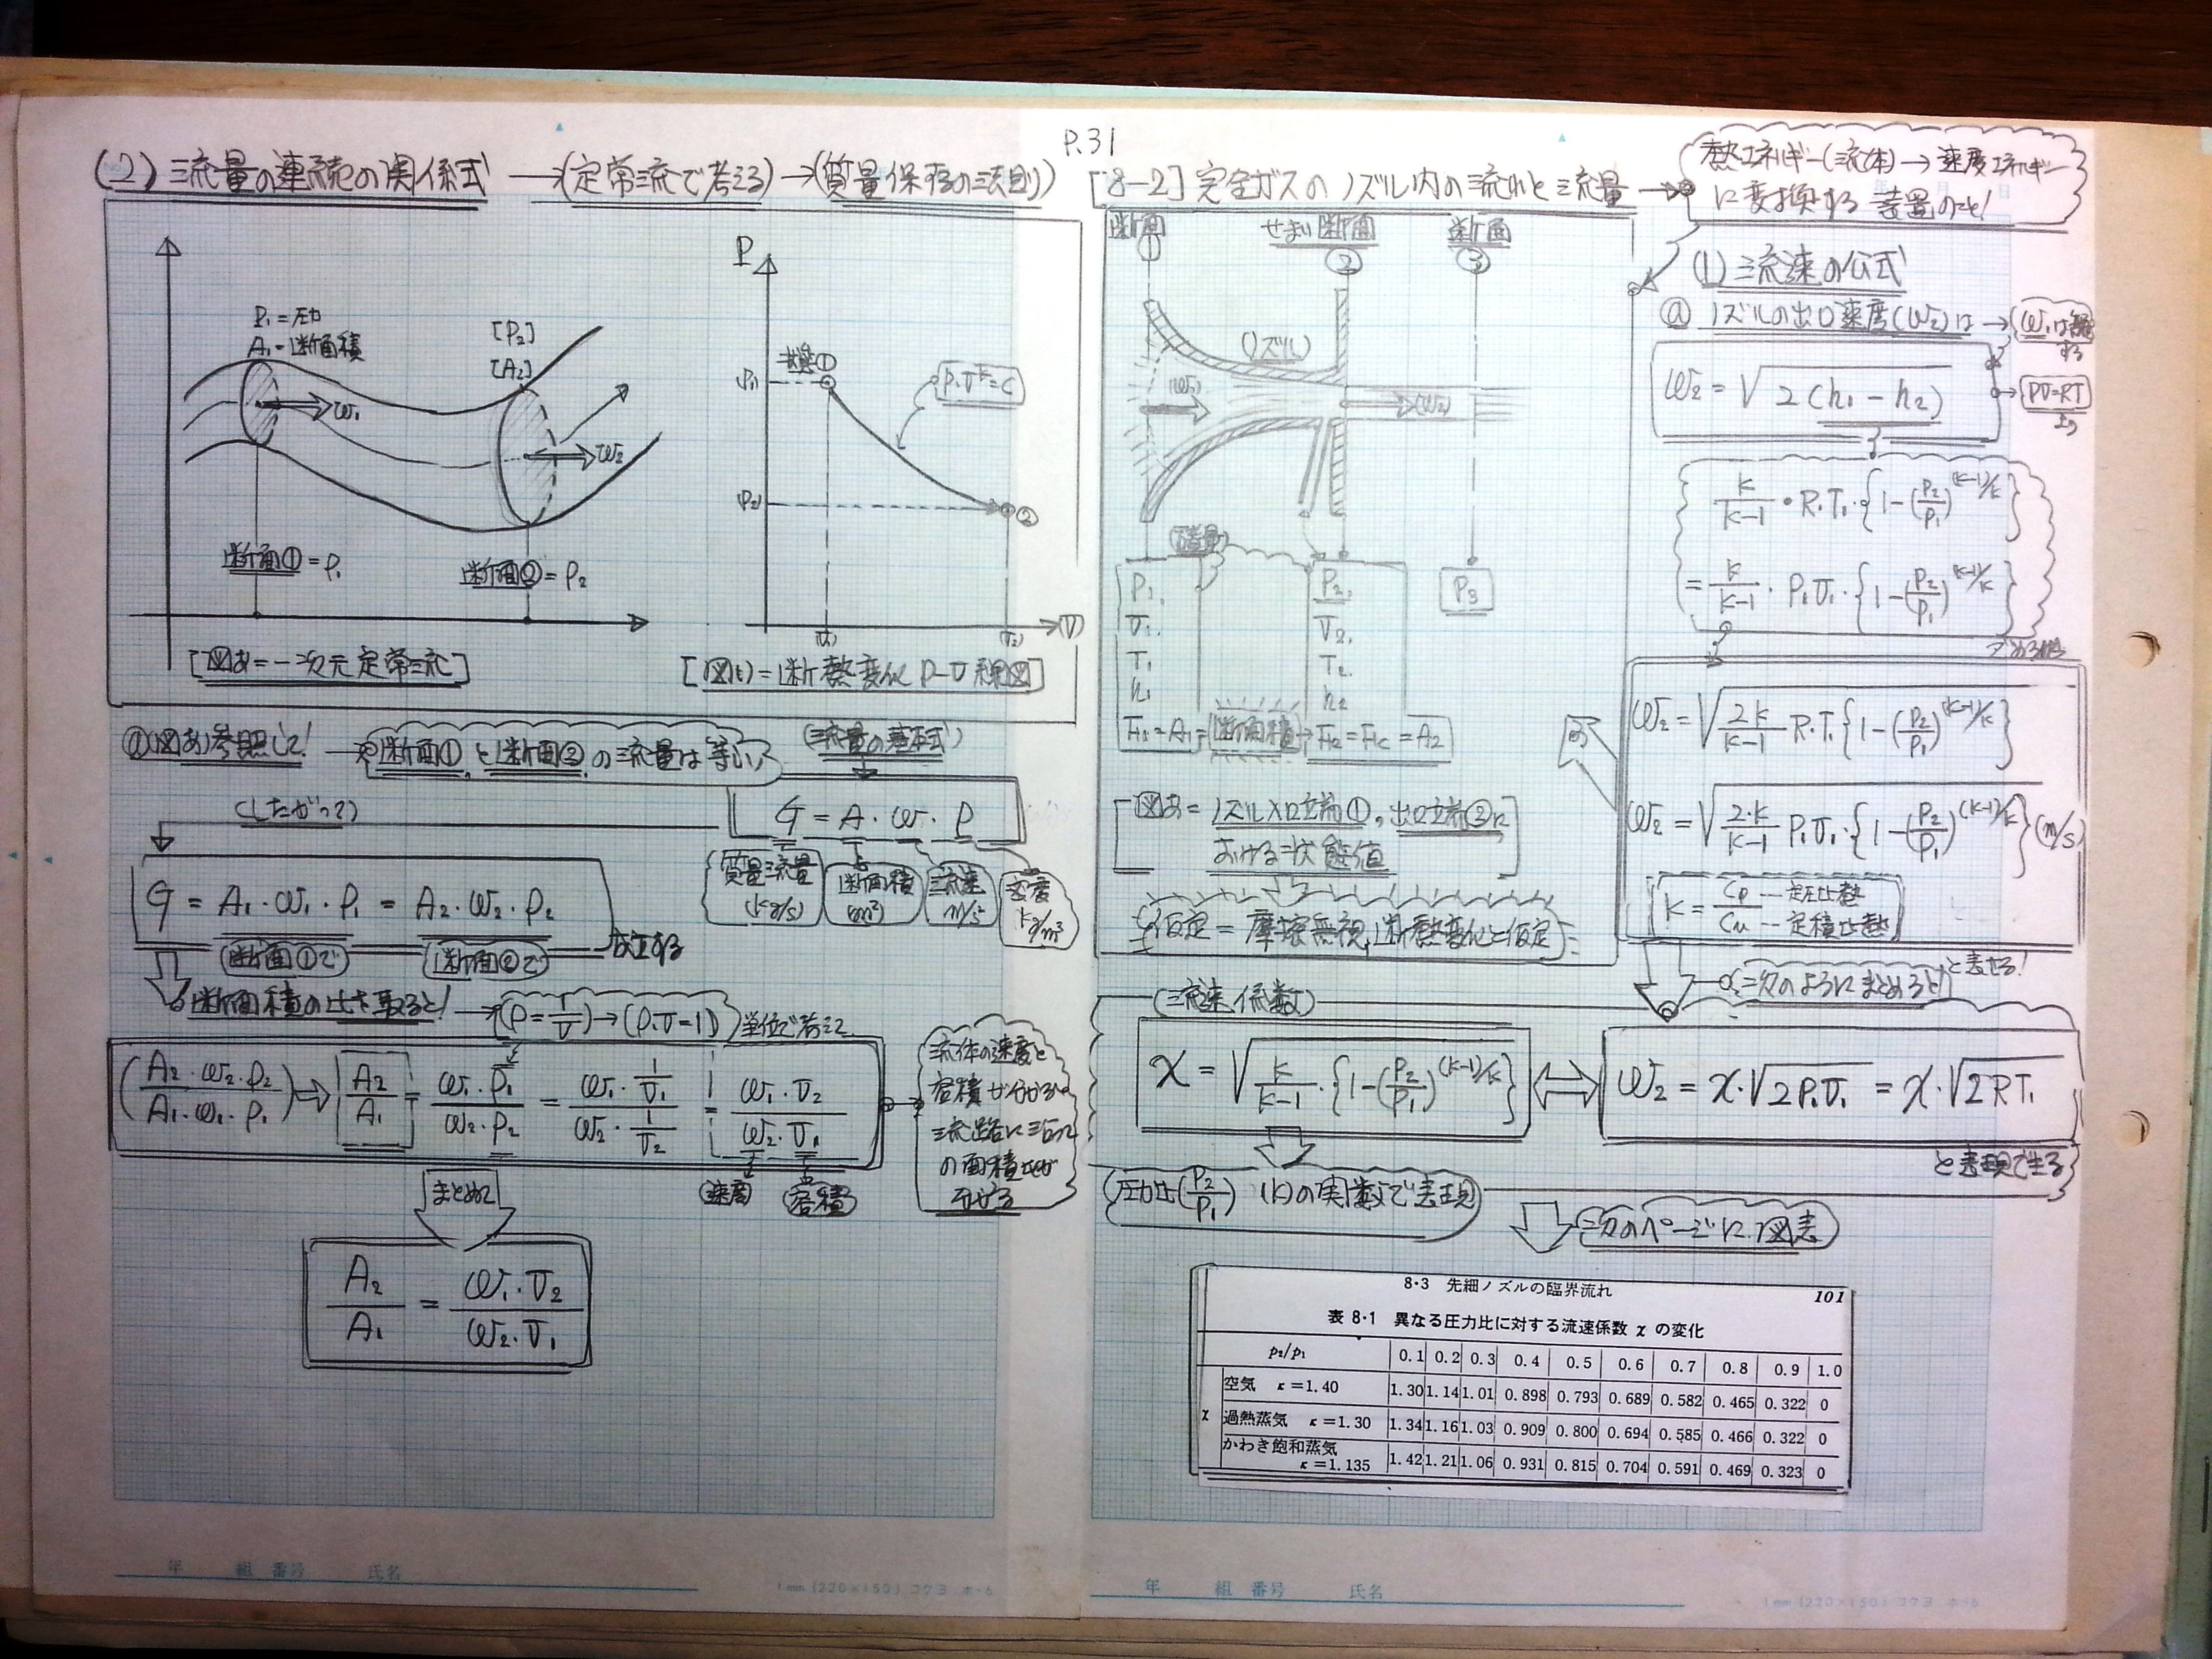 P.31
(2) 流量の連続の関係式 →(定常流で考える)→(質量保存の法則)
P₁=圧力
A₁=断面積
[P₂]
[A₂]
w₁
w₂
断面①=ρ₁
断面②=ρ₂
[図あ=一次元定常流]
P
状態①
(P₁)
P・v^k=C
(P₂)
②
(v₁)
(v₂)
(v)
[図い=断熱変化 P-v線図]
ⓐ(図あ)参照して! → 断面①と断面②の流量は等しい
(流量の基本式)
(したがって)
G = A・w・ρ
質量流量 (kg/s)
断面積 (m²)
流速 m/s
密度 kg/m³
G = A₁・w₁・ρ₁ = A₂・w₂・ρ₂
断面①で
断面②で
成立する
断面積の比を取ると! → (ρ=1/v)→(ρ・v=1) 単位で考えて
(A₂・w₂・ρ₂ / A₁・w₁・ρ₁) ⇒ A₂/A₁ = w₁・ρ₁ / w₂・ρ₂ = w₁・1/v₁ / w₂・1/v₂ = w₁・v₂ / w₂・v₁
速度
容積
流体の速度と
容積が分かる
の面積比が
分かる
まとめて
A₂/A₁ = w₁・v₂ / w₂・v₁
[8-2] 完全ガスのノズル内の流れと流量 →
熱エネルギー(流体)→速度エネルギー
に変換する装置のこと!
断面①
せまい断面②
断面③
(ノズル)
w₁
(w₂)
P₁, v₁, T₁ h₁
P₂, v₂, T₂ h₂
P₃
F₁=A₁=断面積→F₂=Fc=A₂
図あ=ノズル入口立前①,出口立前②に
おける状態値
仮定=摩擦無視,断熱変化と仮定
(1) 流速の公式
ⓐ ノズルの出口速度(w₂)は
w₂ = √2(h₁-h₂)
Pv=RT より
k/(k-1)・R・T₁・{1-(P₂/P₁)^(k-1)/k}
= k/(k-1)・P₁v₁・{1-(P₂/P₁)^(k-1)/k}
w₂ = √2k/(k-1) R・T₁{1-(P₂/P₁)^(k-1)/k}
w₂ = √2・k/(k-1) P₁v₁・{1-(P₂/P₁)^(k-1)/k} (m/s)
k = Cp/Cv
Cp…定圧比熱
Cv…定積比熱
と表せる!
次のようにまとめると
(流速係数)
χ = √k/(k-1)・{1-(P₂/P₁)^(k-1)/k} ⇔ w₂ = χ・√2P₁v₁ = χ・√2RT₁
と表現できる
圧力比(P₂/P₁) (k)の関数で表現
次のページに図表
8・3 先細ノズルの臨界流れ 101
表 8・1 異なる圧力比に対する流速係数 χ の変化
p₂/p₁ 0.1 0.2 0.3 0.4 0.5 0.6 0.7 0.8 0.9 1.0
χ
空気 κ=1.40 1.30 1.14 1.01 0.898 0.793 0.689 0.582 0.465 0.322 0
過熱蒸気 κ=1.30 1.34 1.16 1.03 0.909 0.800 0.694 0.585 0.466 0.322 0
かわき飽和蒸気
κ=1.135 1.42 1.21 1.06 0.931 0.815 0.704 0.591 0.469 0.323 0
年 組 番号 氏名
1mm (220×150) コクヨ ホ-6
年 組 番号 氏名
1mm (220×150) コクヨ ホ-6